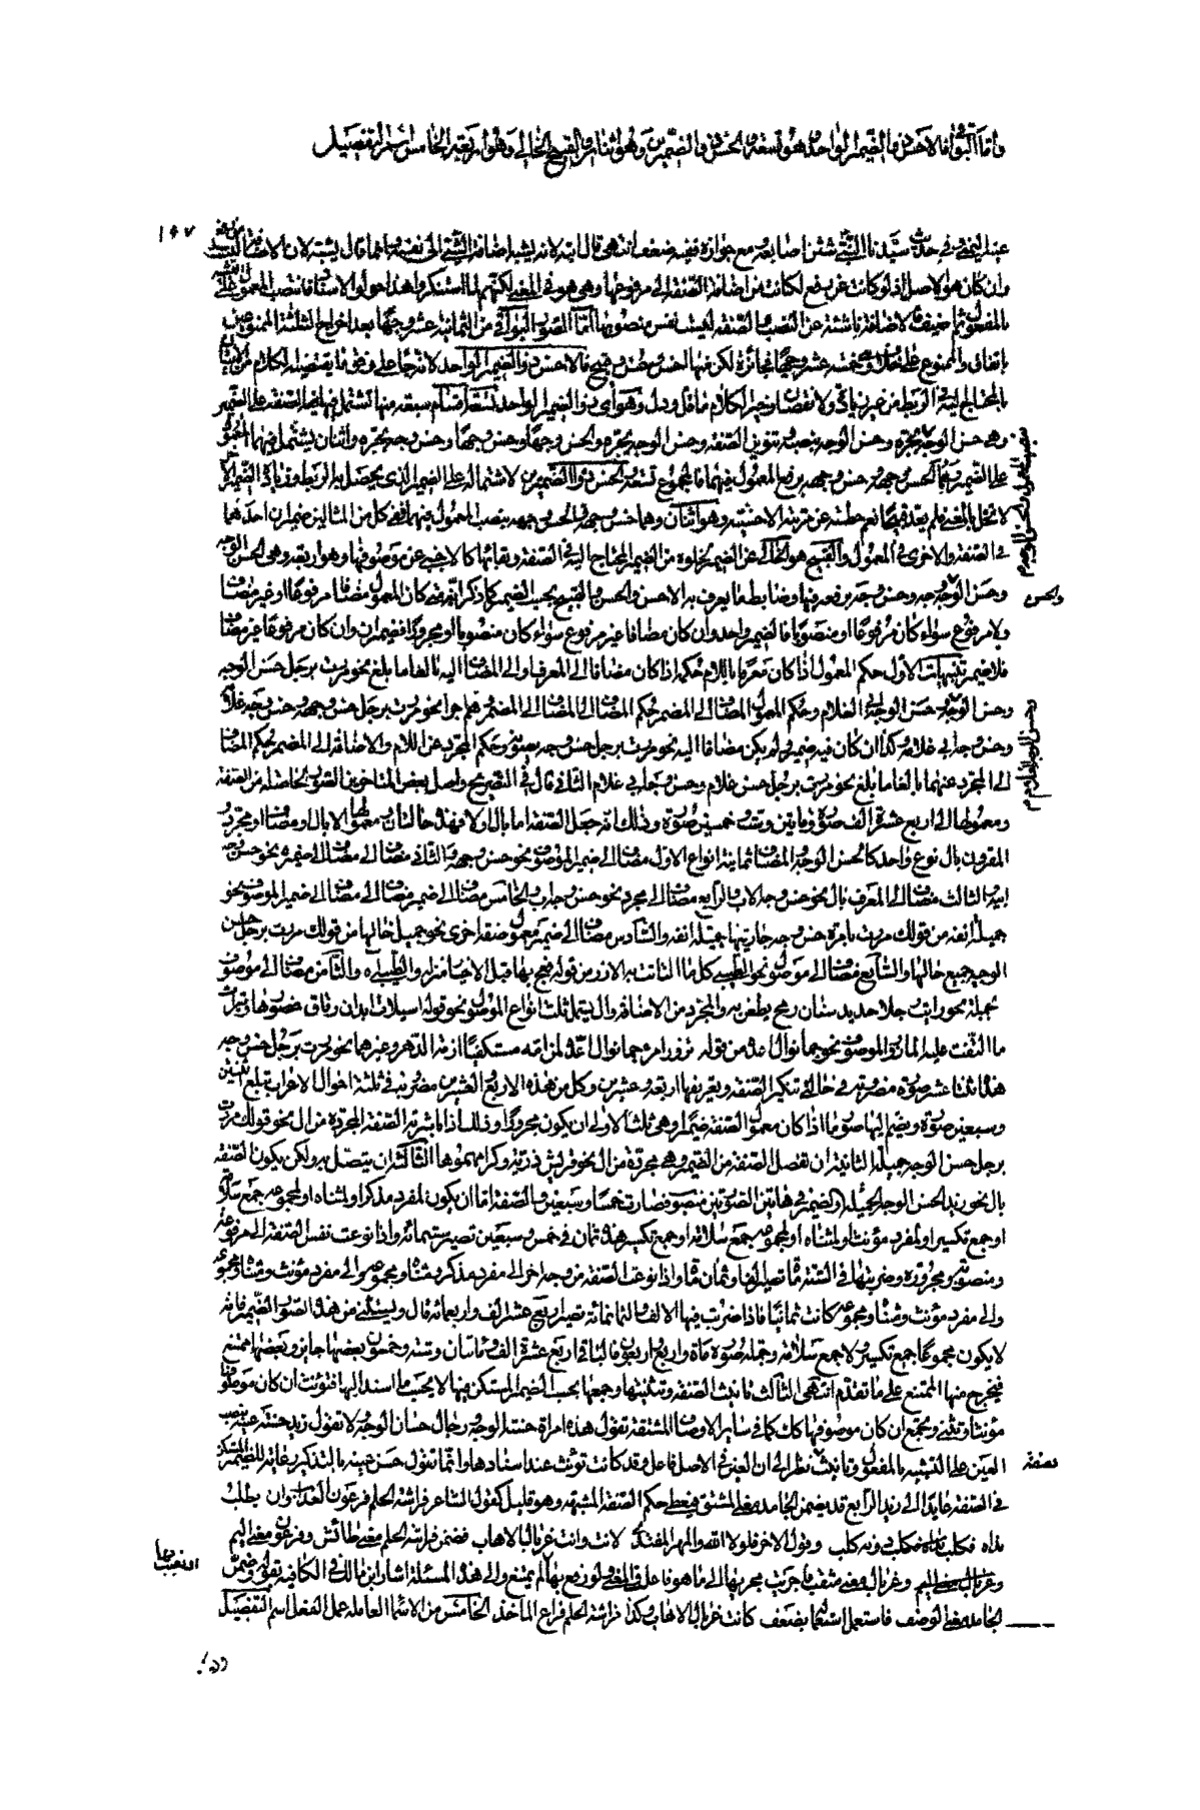 وأما البواقي فالأحسن ذو الضمير الواحد وهو تسعة والحسن ذو الضميرين وهو اثنان والقبيح الخالي وهو أربعة الخامس اسم التفضيل
١٤٧
وان كان هو الاصل اذ لو كانت عن رفع لكانت من اضافة الصفة الى مرفوعها وهي هو في المعنى لكنهم لما استنكروا هذا حولوا الاسناد
بالمفعول ثم اضيف فالاضافة ناشئة عن النصب والصفة ليست نفس منصوبها اما الصور البواقي من الثمانية عشر وجها بعد اخراج الثلثة الممنوعين
باتفاق والممنوع على خلاف وهي خمسة عشر وجها فجائزة لكن منها احسن وحسن وقبيح فالاحسن ذو الضمير الواحد
المحتاج اليه في الربط من غير زيادة ولا نقصان وخير الكلام ما قل ودل وهو أي ذو الضمير الواحد تسعة اقسام سبعة منها تشتمل فيها الصفة على الضمير
وهي حسن الوجه بجره وحسن الوجه بنصبه وتنوين الصفة وحسن الوجه بجره والحسن وجها وحسن وجها وحسن وجه بجره واثنان يشتمل فيهما المعمول
على الضمير وهما الحسن وجهه وحسن وجهه برفع المعمول فيهما فالمجموع تسعة الحسن ذو الضميرين لاشتماله على الضمير الذي يحصل به الربط
لا تخل بالمعنى فلم يعد قبيحا نعم حطته عن مرتبة الاحسنية وهو اثنان وهما حسن وجهه والحسن وجهه بنصب المعمول فيهما ففي كل من المثالين ضميران احدهما
في الصفة والاخر في المعمول والقبيح هو الخالي عن الضمير لخلوه من الضمير المحتاج اليه في الصفة وبقائها كالاجنبي عن موصوفها وهو اربعة وهي الحسن الوجه
وحسن الوجه وحسن وجه برفعه فيها وضابط ما يعرف به الاحسن والحسن والقبيح بحسب الضمير كما ذكر انه متى كان المعمول مضافا مرفوعا او غير مضاف
والحسن
ولا مرفوع سواء كان مرفوعا او منصوبا فالضمير واحد وان كان مضافا غير مرفوع سواء كان منصوبا او مجرورا فضميران وان كان مرفوعا غير مضاف
فلا ضمير تنبيهات الاول حكم المعمول اذا كان معرفا باللام حكمه اذا كان مضافا الى المعرف او الى المضاف اليه بالغا ما بلغ نحو مررت برجل حسن الوجه
وحسن الوجه حسن الوجه ابي الغلام وحكم المعمول المضاف الى المضمر حكم المضاف الى المضاف الى المضمر وهلم جرا نحو مررت برجل حسن وجهه وحسن وجه غلامه
وحسن وجه ابي غلامه وكذا ان كان فيه ضمير ولم يكن مضافا اليه نحو مررت برجل حسن وجه يصونه وحكم المجرد عن اللام والاضافة الى المضمر حكم المضاف
الى المجرد عنهما بالغا ما بلغ نحو مررت برجل حسن غلام وحسن وجه ابي غلام الثاني قال في التصريح واصل بعض المتاخرين الصور الحاصلة من الصفة
ومعمولها الى اربع عشرة الف صورة ومايتين وست وخمسين صورة وذلك انه جعل الصفة اما بال او لا فهذه حالتان ومعمولها اما بال او مضاف او مجرد
المقرون بال نوع واحد كالحسن الوجه والمضاف ثمانية انواع الاول مضاف الى ضمير الموصوف نحو حسن وجهه والثاني مضاف الى مضاف الى ضميره نحو حسن وجه
ابيه والثالث مضاف الى المعرف بال نحو حسن وجه الاب والرابع مضاف الى مجرد نحو حسن وجه اب والخامس مضاف الى ضمير مضاف الى مضاف الى ضمير الموصوف نحو
جميلة انفه من قولك مررت بامرءة حسن وجه جاريتها جميلة انفه والسادس مضاف الى ضمير معمول صفة اخرى نحو جميل خالها من قولك مررت برجل حسن
الوجنة جميل خالها والسابع مضاف الى موصول نحو والطيبي كل ما التاثت به الازر من قوله فعج بها قبل الاخيار منزلة والطيبي كل والثامن مضاف الى موصوف
بجملة نحو رايت رجلا حديد سنان رمح يطعن به والمجرد من الاضافة وال يشمل ثلثة انواع الموصول نحو قوله اسيلات ابدان دقاق خصورها وثيرات
ما التفت عليه المازر والموصوف نحو جما نوال اعده من قوله تزور امرءا جما نوال اعده لمن امه مستكفيا ازمة الدهر وغيرهما نحو مررت برجل حسن وجه
هذه اثنتا عشرة صورة مضروبة في حالتي تنكير الصفة وتعريفها اربعة وعشرين وكل من هذه الاربع والعشرين مضروبة في ثلثة احوال الاعراب تبلغ اثنتين
وسبعين صورة ويضم اليها صور ما اذا كان معمول الصفة ضميرا وهي ثلث الاولى ان يكون مجرورا وذلك اذا باشرته الصفة المجردة من ال نحو قولك مررت
برجل حسن الوجه جميله الثانية ان تفصل الصفة من الضمير وهي مجردة من ال نحو قريش خير الناس ذرية وكرامهموها الثالثة ان يتصل به ولكن يكون الصفة
بال نحو زيد الحسن الوجه الجميله والضمير في هاتين الصورتين منصوب فصارت خمسا وسبعين والصفة اما ان يكون لمفرد مذكر او لمثناه او لمجموعه جمع سلامة
او جمع تكسير او لمفرد مؤنث او لمثناه او لمجموعه جمع سلامة او جمع تكسير هذه ثمان في خمس وسبعين تصير ستمائة واذا نوعت نفس الصفة الى مرفوعة
ومنصوبة ومجرورة وضربتها في الستمائة تصير الفا وثمان مائة واذا نوعت الصفة من وجه اخر الى مفرد مذكر ومثناه ومجموعه والى مفرد مؤنث ومثناه ومجموعه
والى مفرد مؤنث ومثناه ومجموعه كانت ثمانيا فاذا ضربت فيها الالف والثمانمائة تصير اربع عشرة الف واربعمائة قال ويستثنى من هذه الصور الضمير فانه
لا يكون مجموعا جمع تكسير ولا جمع سلامة وجملة صوره مائة واربع واربعون فالباقي اربع عشرة الف ومائتان وستة وخمسون بعضها جائز وبعضها ممتنع
فيخرج منها الممتنع على ما تقدم انتهى الثالث تانيث الصفة وتثنيتها وجمعها بحسب الضمير المستكن فيها لا بحسب ما اسند اليها فتؤنث ان كان موصوفها
مؤنثا وتثنى وتجمع ان كان موصوفها كذلك كما في ساير الاوصاف المشتقة تقول هذه امرأة حسنة الوجه ورجال حسان الوجوه لا تقول زيد حسنة عينه بنصب
العين على التشبيه بالمفعول وتانيث نظرا الى ان العين في الاصل فاعل وقد كانت تؤنث عند اسنادها وانما تقول حسن عينه بالتذكير رعاية للضمير المستكن
في الصفة عايدا الى زيد الرابع قد يضمن الجامد معنى المشتق فيعطى حكم الصفة المشبهة وهو قليل كقول الشاعر فراشة الحلم فرعون العذاب وان يطلب
نداه فكلب دونه كلب وقول الاخر فلولا الله والمهر المفدى لابت وانت غربال الاهاب فضمن فراشة الحلم معنى طائش وفرعون معنى اليم
وغربال معنى مثقب فاجريت مجراها الى ما هو فاعل في المعنى ولو رفع بها لم يمتنع والى هذه المسئلة اشار ابن مالك في الكافية بقوله وضمن
الجامد معنى الوصف فاستعمل استعماله بضعف كانت غربال الاهاب وكذا فراشة الحلم فراع الماخذ الخامس من الاسماء العاملة عمل الفعل اسم التفضيل